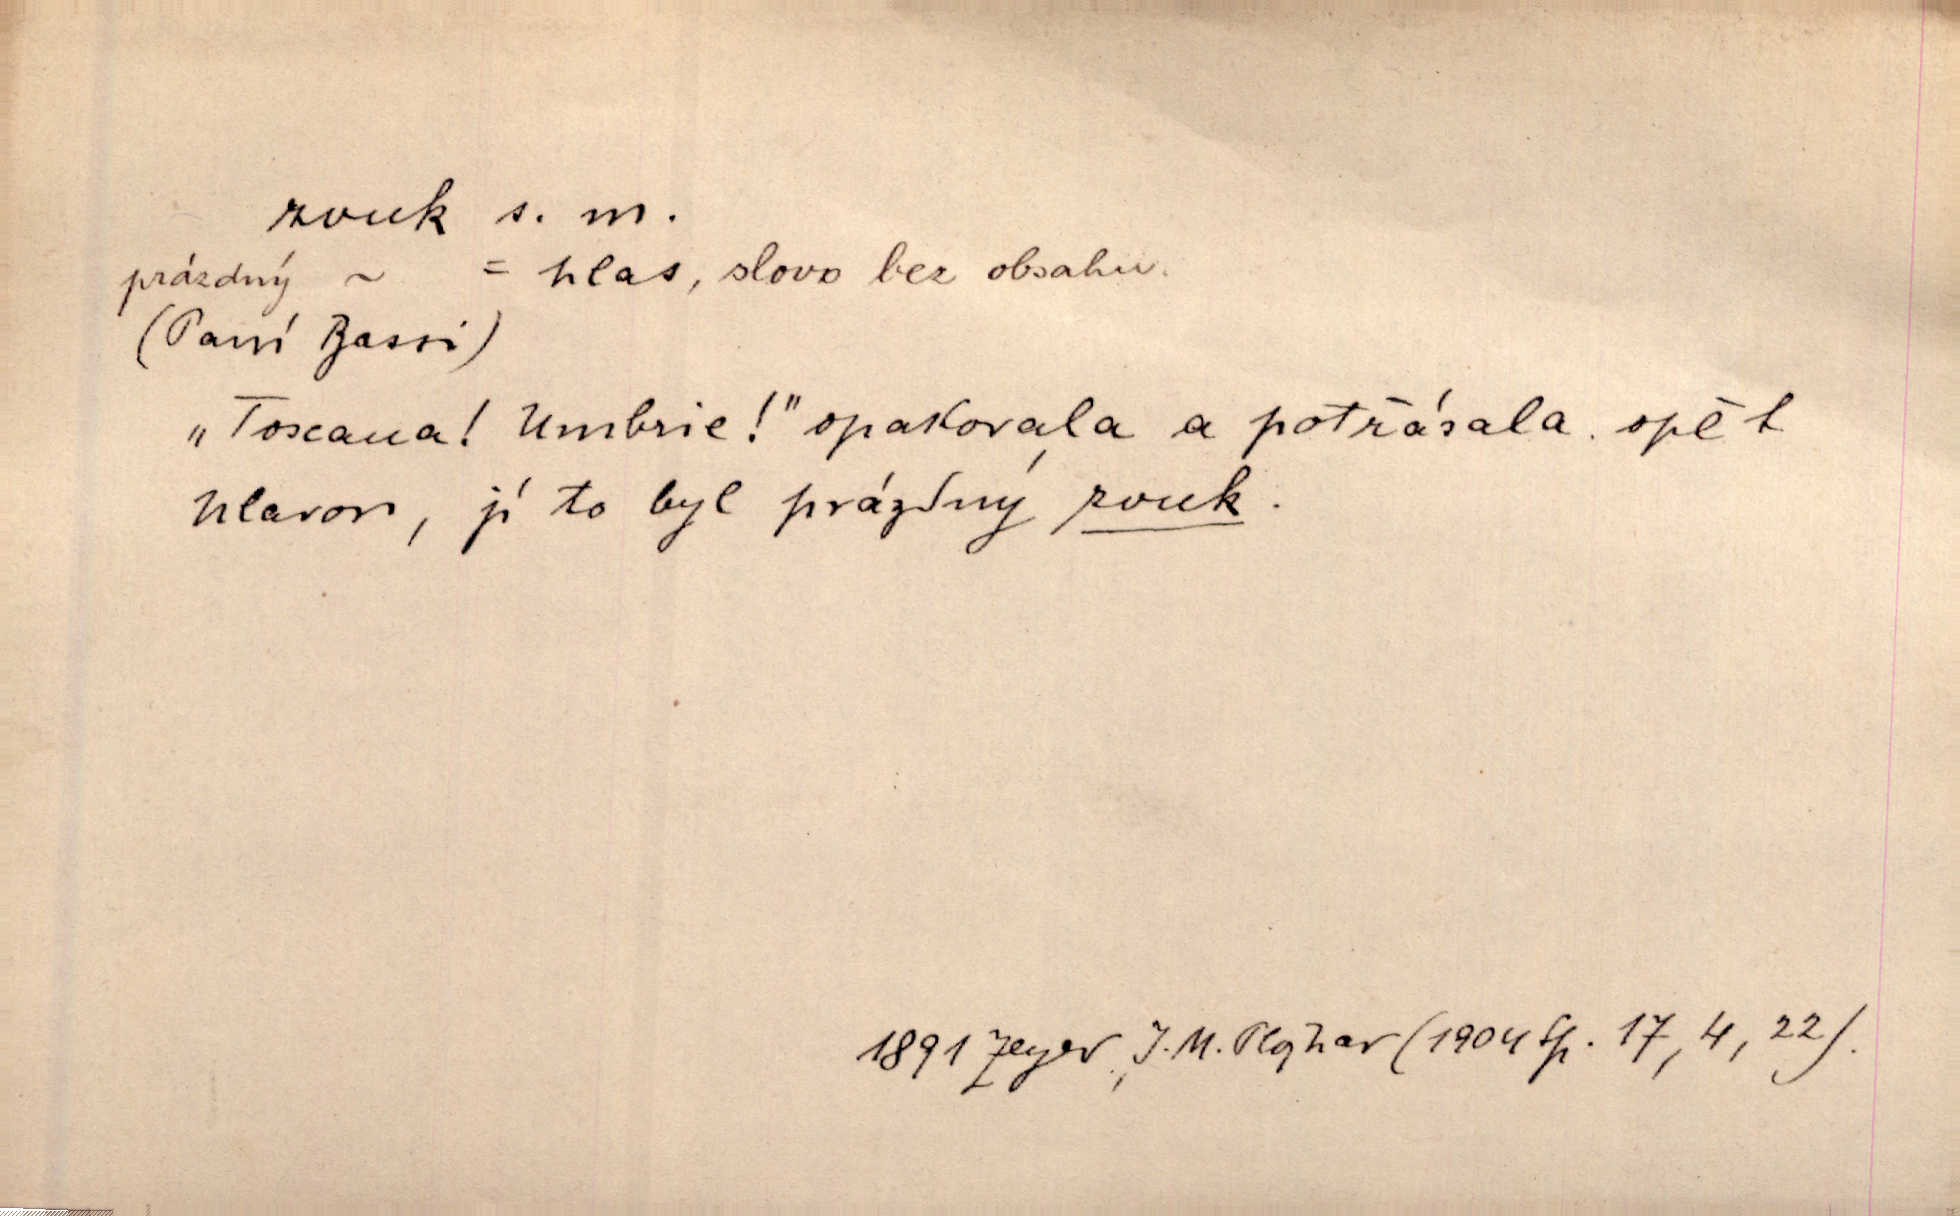 zvuk s. m.
prázdný ~ = hlas, slovo bez obsahu.
(Paní Bassi)
„Toscana! Umbrie!" opakovala a potřásala opět
hlavou, jí to byl prázdný zvuk.
1891 Zeyer, J. M. Plojhar (1904 Sp. 17, 4, 22).